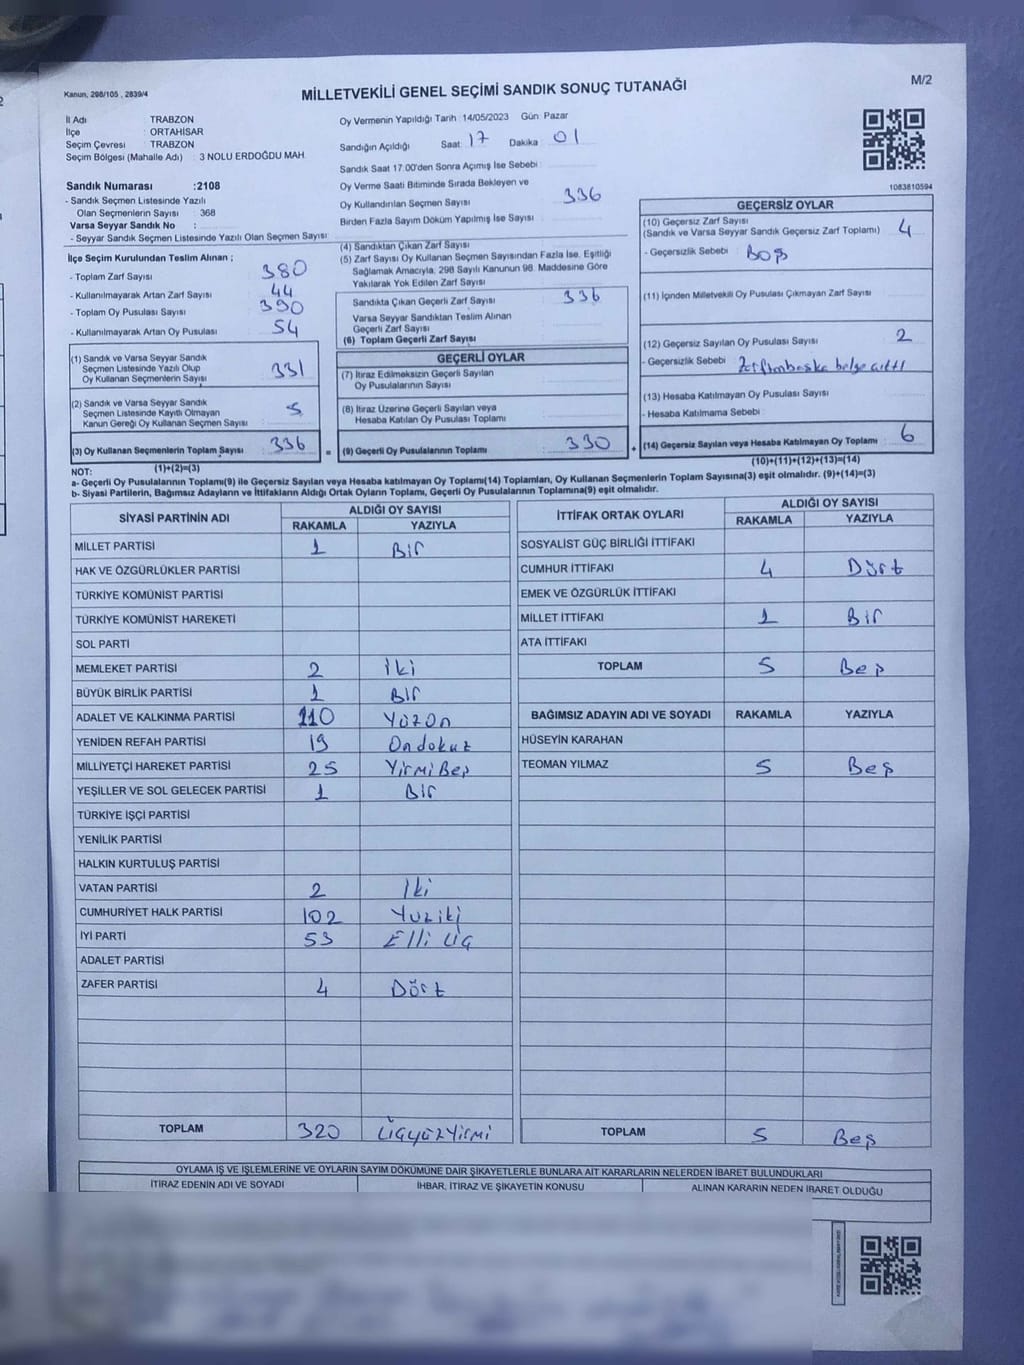 M/2
Kanun, 298/105 , 2839/4
MİLLETVEKİLİ GENEL SEÇİMİ SANDIK SONUÇ TUTANAĞI
İl Adı TRABZON
İlçe : ORTAHİSAR
Seçim Çevresi : TRABZON
Seçim Bölgesi (Mahalle Adı) : 3 NOLU ERDOĞDU MAH.
Sandık Numarası :2108
- Sandık Seçmen Listesinde Yazılı
Olan Seçmenlerin Sayısı : 368
Varsa Seyyar Sandık No :
- Seyyar Sandık Seçmen Listesinde Yazılı Olan Seçmen Sayısı:
Oy Vermenin Yapıldığı Tarih :14/05/2023 Gün Pazar
Sandığın Açıldığı Saat 17 Dakika 01
Sandık Saat 17:00'den Sonra Açımış İse Sebebi :
Oy Verme Saati Bitiminde Sırada Bekleyen ve
Oy Kullandırılan Seçmen Sayısı 336
Birden Fazla Sayım Döküm Yapılmış İse Sayısı :
1083810594
İlçe Seçim Kurulundan Teslim Alınan ;
- Toplam Zarf Sayısı 380
- Kullanılmayarak Artan Zarf Sayısı 44
- Toplam Oy Pusulası Sayısı 390
- Kullanılmayarak Artan Oy Pusulası 54
(1) Sandık ve Varsa Seyyar Sandık
Seçmen Listesinde Yazılı Olup
Oy Kullanan Seçmenlerin Sayısı 331
(2) Sandık ve Varsa Seyyar Sandık
Seçmen Listesinde Kayıtlı Olmayan
Kanun Gereği Oy Kullanan Seçmen Sayısı 5
(3) Oy Kullanan Seçmenlerin Toplam Sayısı 336 =
(1)+(2)=(3)
(4) Sandıktan Çıkan Zarf Sayısı
(5) Zarf Sayısı Oy Kullanan Seçmen Sayısından Fazla İse, Eşitliği
Sağlamak Amacıyla, 298 Sayılı Kanunun 98. Maddesine Göre
Yakılarak Yok Edilen Zarf Sayısı
Sandıkta Çıkan Geçerli Zarf Sayısı 336
Varsa Seyyar Sandıktan Teslim Alınan
Geçerli Zarf Sayısı
(6) Toplam Geçerli Zarf Sayısı
GEÇERLİ OYLAR
(7) İtiraz Edilmeksizin Geçerli Sayılan
Oy Pusulalarının Sayısı
(8) İtiraz Üzerine Geçerli Sayılan veya
Hesaba Katılan Oy Pusulası Toplamı
(9) Geçerli Oy Pusulalarının Toplamı 330 +
GEÇERSİZ OYLAR
(10) Geçersiz Zarf Sayısı
(Sandık ve Varsa Seyyar Sandık Geçersiz Zarf Toplamı) 4
- Geçersizlik Sebebi : BOŞ
(11) İçinden Milletvekili Oy Pusulası Çıkmayan Zarf Sayısı
(12) Geçersiz Sayılan Oy Pusulası Sayısı 2
- Geçersizlik Sebebi
(13) Hesaba Katılmayan Oy Pusulası Sayısı
- Hesaba Katılmama Sebebi :
(14) Geçersiz Sayılan veya Hesaba Katılmayan Oy Toplamı 6
(10)+(11)+(12)+(13)=(14)
NOT:
a- Geçerli Oy Pusulalarının Toplamı(9) ile Geçersiz Sayılan veya Hesaba katılmayan Oy Toplamı(14) Toplamları, Oy Kullanan Seçmenlerin Toplam Sayısına(3) eşit olmalıdır. (9)+(14)=(3)
b- Siyasi Partilerin, Bağımsız Adayların ve İttifakların Aldığı Ortak Oyların Toplamı, Geçerli Oy Pusulalarının Toplamına(9) eşit olmalıdır.
SİYASİ PARTİNİN ADI ALDIĞI OY SAYISI
RAKAMLA YAZIYLA
MİLLET PARTİSİ 1 Bir
HAK VE ÖZGÜRLÜKLER PARTİSİ
TÜRKİYE KOMÜNİST PARTİSİ
TÜRKİYE KOMÜNİST HAREKETİ
SOL PARTİ
MEMLEKET PARTİSİ 2 İki
BÜYÜK BİRLİK PARTİSİ 1 Bir
ADALET VE KALKINMA PARTİSİ 110 Yüzon
YENİDEN REFAH PARTİSİ 19 Ondokuz
MİLLİYETÇİ HAREKET PARTİSİ 25 YirmiBeş
YEŞİLLER VE SOL GELECEK PARTİSİ 1 Bir
TÜRKİYE İŞÇİ PARTİSİ
YENİLİK PARTİSİ
HALKIN KURTULUŞ PARTİSİ
VATAN PARTİSİ 2 İki
CUMHURİYET HALK PARTİSİ 102 Yuziki
İYİ PARTİ 53 Elli üç
ADALET PARTİSİ
ZAFER PARTİSİ 4 Dört
TOPLAM 320 Üçyüzyirmi
İTTİFAK ORTAK OYLARI ALDIĞI OY SAYISI
RAKAMLA YAZIYLA
SOSYALİST GÜÇ BİRLİĞİ İTTİFAKI
CUMHUR İTTİFAKI 4 Dört
EMEK VE ÖZGÜRLÜK İTTİFAKI
MİLLET İTTİFAKI 1 Bir
ATA İTTİFAKI
TOPLAM 5 Beş
BAĞIMSIZ ADAYIN ADI VE SOYADI RAKAMLA YAZIYLA
HÜSEYİN KARAHAN
TEOMAN YILMAZ 5 Beş
TOPLAM 5 Beş
OYLAMA İŞ VE İŞLEMLERİNE VE OYLARIN SAYIM DÖKÜMÜNE DAİR ŞİKAYETLERLE BUNLARA AİT KARARLARIN NELERDEN İBARET BULUNDUKLARI
İTİRAZ EDENİN ADI VE SOYADI İHBAR, İTİRAZ VE ŞİKAYETİN KONUSU ALINAN KARARIN NEDEN İBARET OLDUĞU